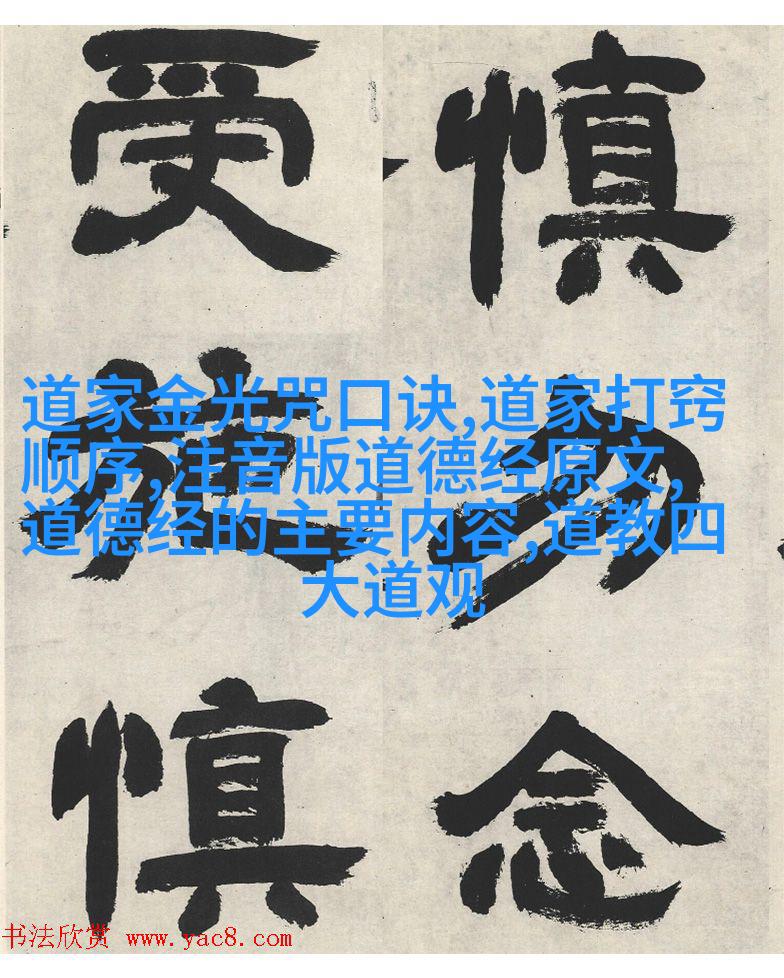 慎勿念
受施慎
道家金光咒口诀,道家打窍
顺序,注音版道德经原文,
道德经的主要内容,道教四
大道观
书法欣赏 www.yac8.com